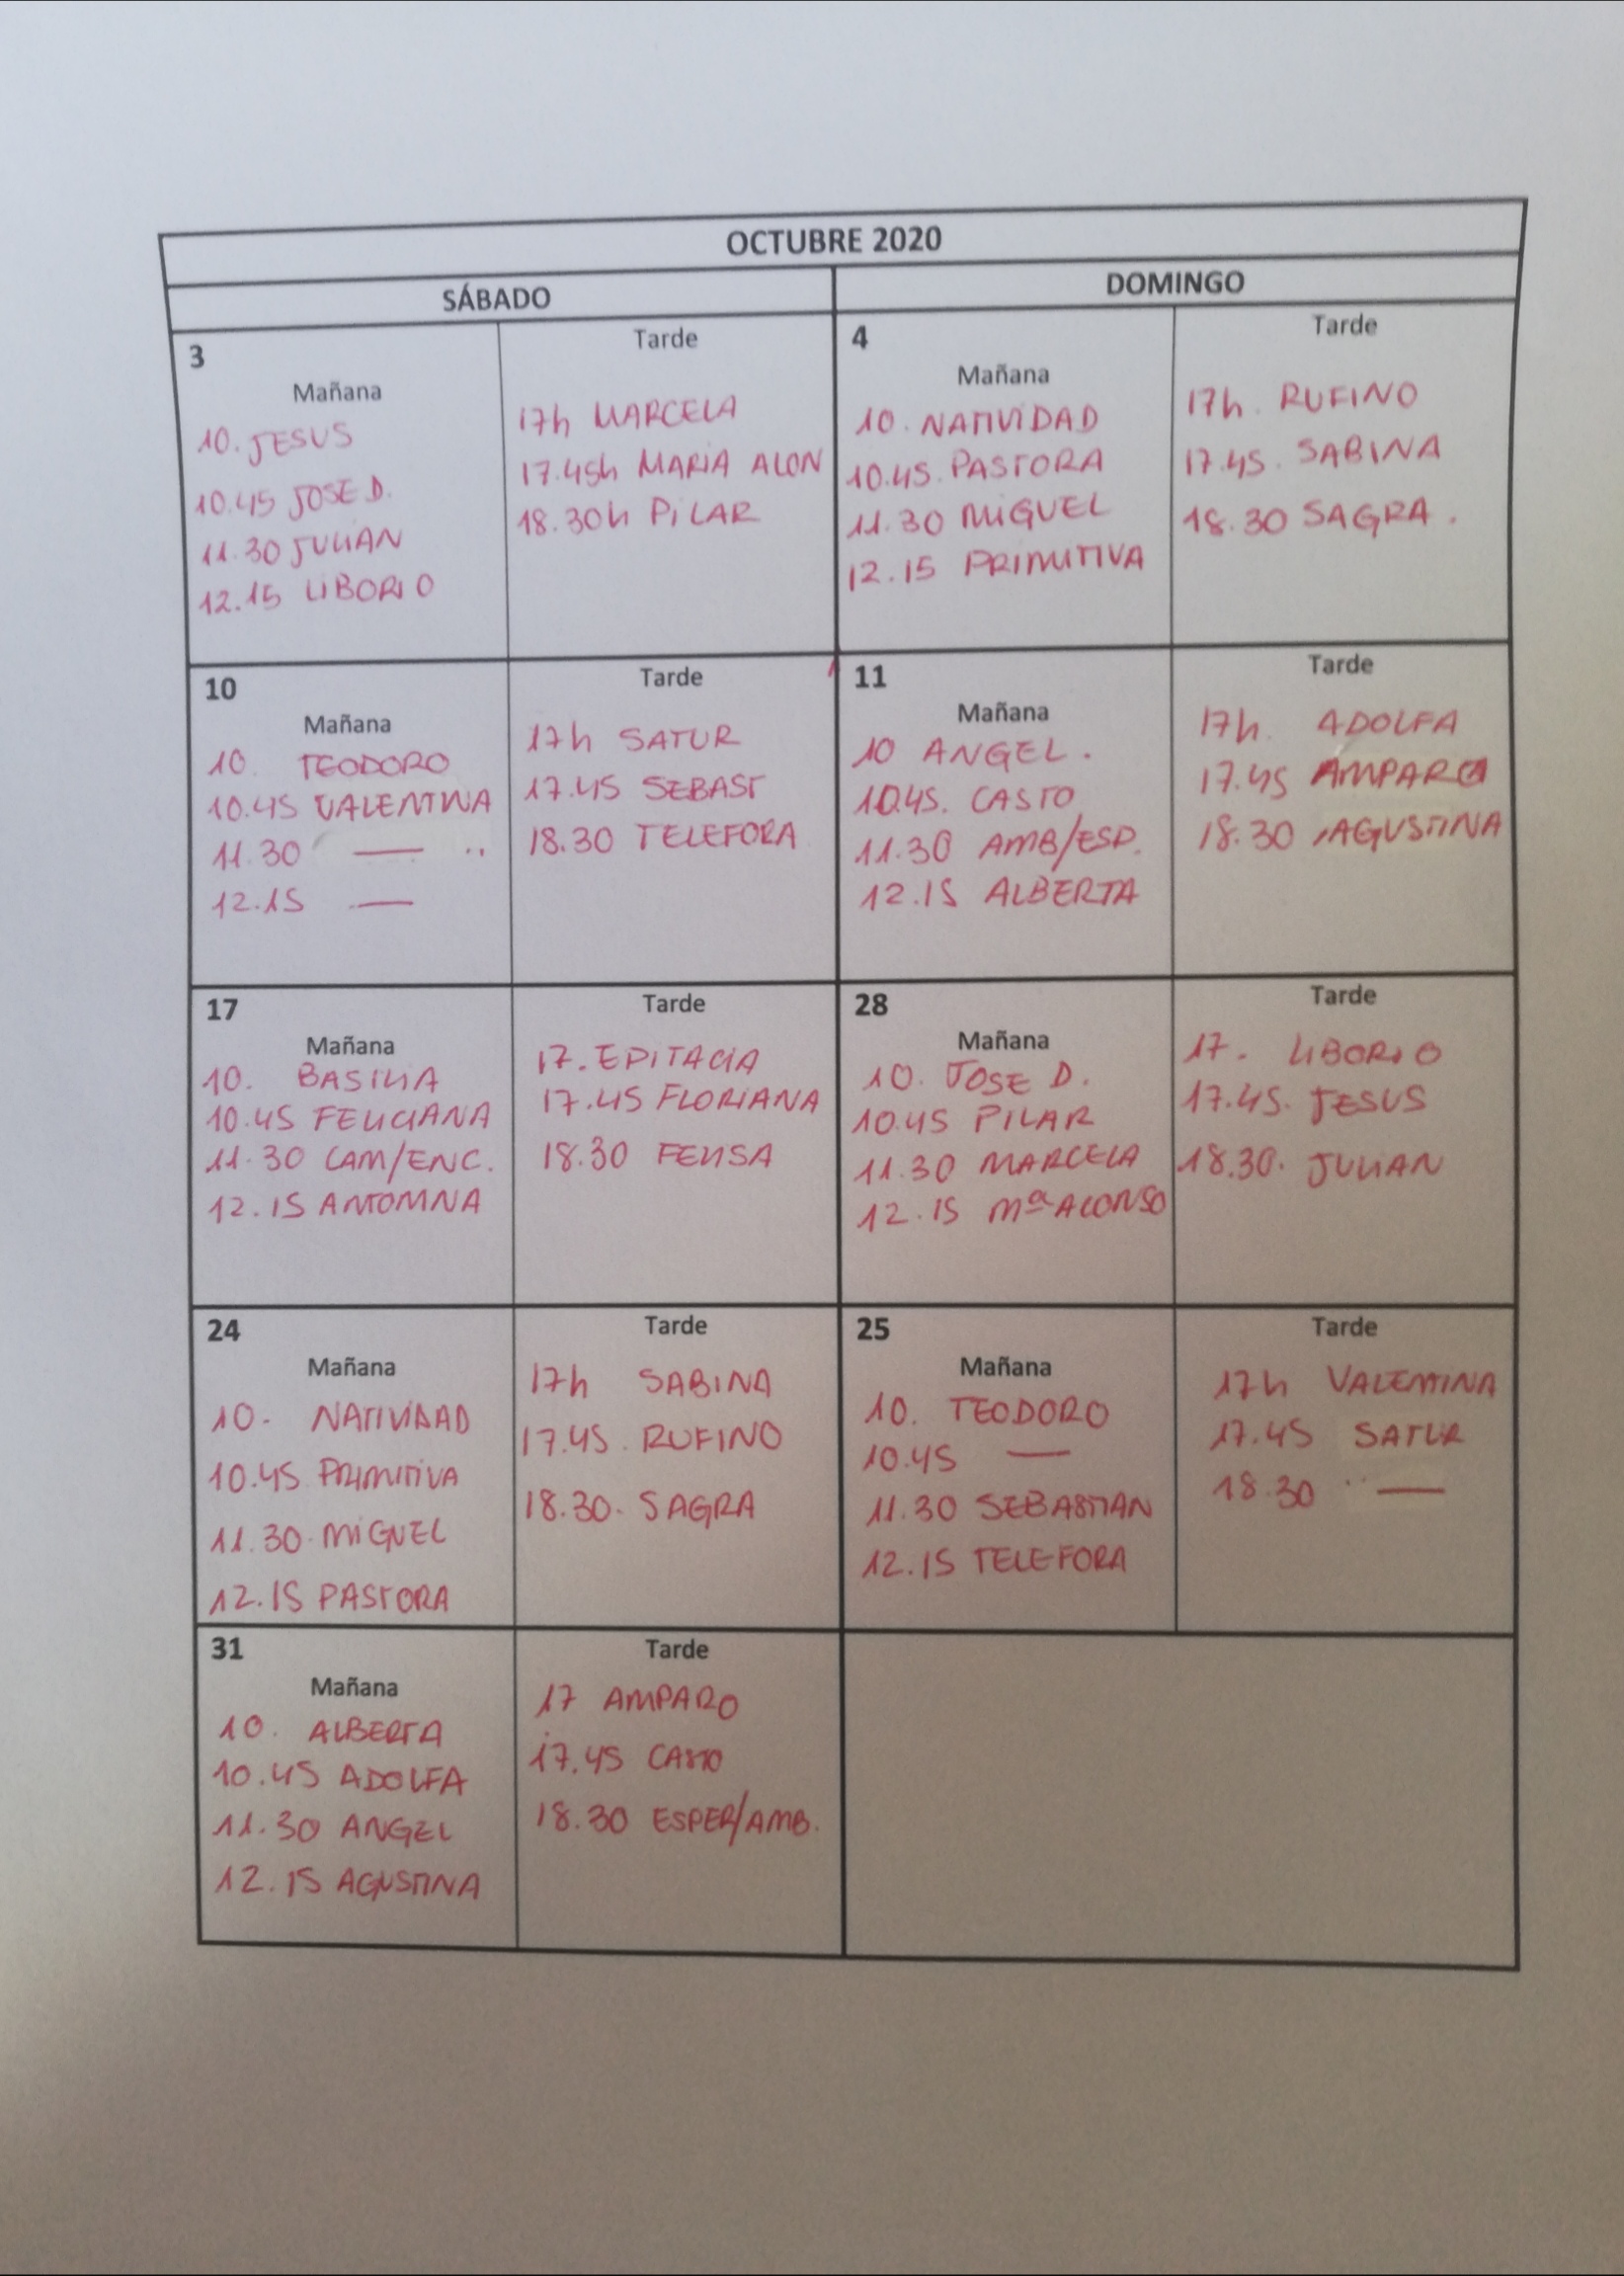 OCTUBRE 2020
SÁBADO
DOMINGO
3
Mañana
10. JESUS
10.45 JOSE D.
11.30 JULIAN
12.15 LIBORIO
Tarde
17h MARCELA
17.45h MARIA ALON
18.30h PILAR
4
Mañana
10. NATIVIDAD
10.45. PASTORA
11.30 MIGUEL
12.15 PRIMITIVA
Tarde
17h. RUFINO
17.45. SABINA
18.30 SAGRA.
10
Mañana
10. TEODORO
10.45 VALENTINA
11.30 —
12.15 —
Tarde
17h SATUR
17.45 SEBAST
18.30 TELEFORA
11
Mañana
10 ANGEL.
10.45. CASTO
11.30 AMB/ESP.
12.15 ALBERTA
Tarde
17h. ADOLFA
17.45 AMPARO
18.30 AGUSTINA
17
Mañana
10. BASILIA
10.45 FELICIANA
11.30 CAM/ENC.
12.15 ANTONINA
Tarde
17. EPITACIA
17.45 FLORIANA
18.30 FELISA
28
Mañana
10. JOSE D.
10.45 PILAR
11.30 MARCELA
12.15 Mª ALONSO
Tarde
17. LIBORIO
17.45. JESUS
18.30. JULIAN
24
Mañana
10. NATIVIDAD
10.45 PRIMITIVA
11.30. MIGUEL
12.15 PASTORA
Tarde
17h SABINA
17.45. RUFINO
18.30. SAGRA
25
Mañana
10. TEODORO
10.45 —
11.30 SEBASTIAN
12.15 TELEFORA
Tarde
17h VALENTINA
17.45 SATUR
18.30 —
31
Mañana
10. ALBERTA
10.45 ADOLFA
11.30 ANGEL
12.15 AGUSTINA
Tarde
17 AMPARO
17.45 CASTO
18.30 ESPER/AMB.